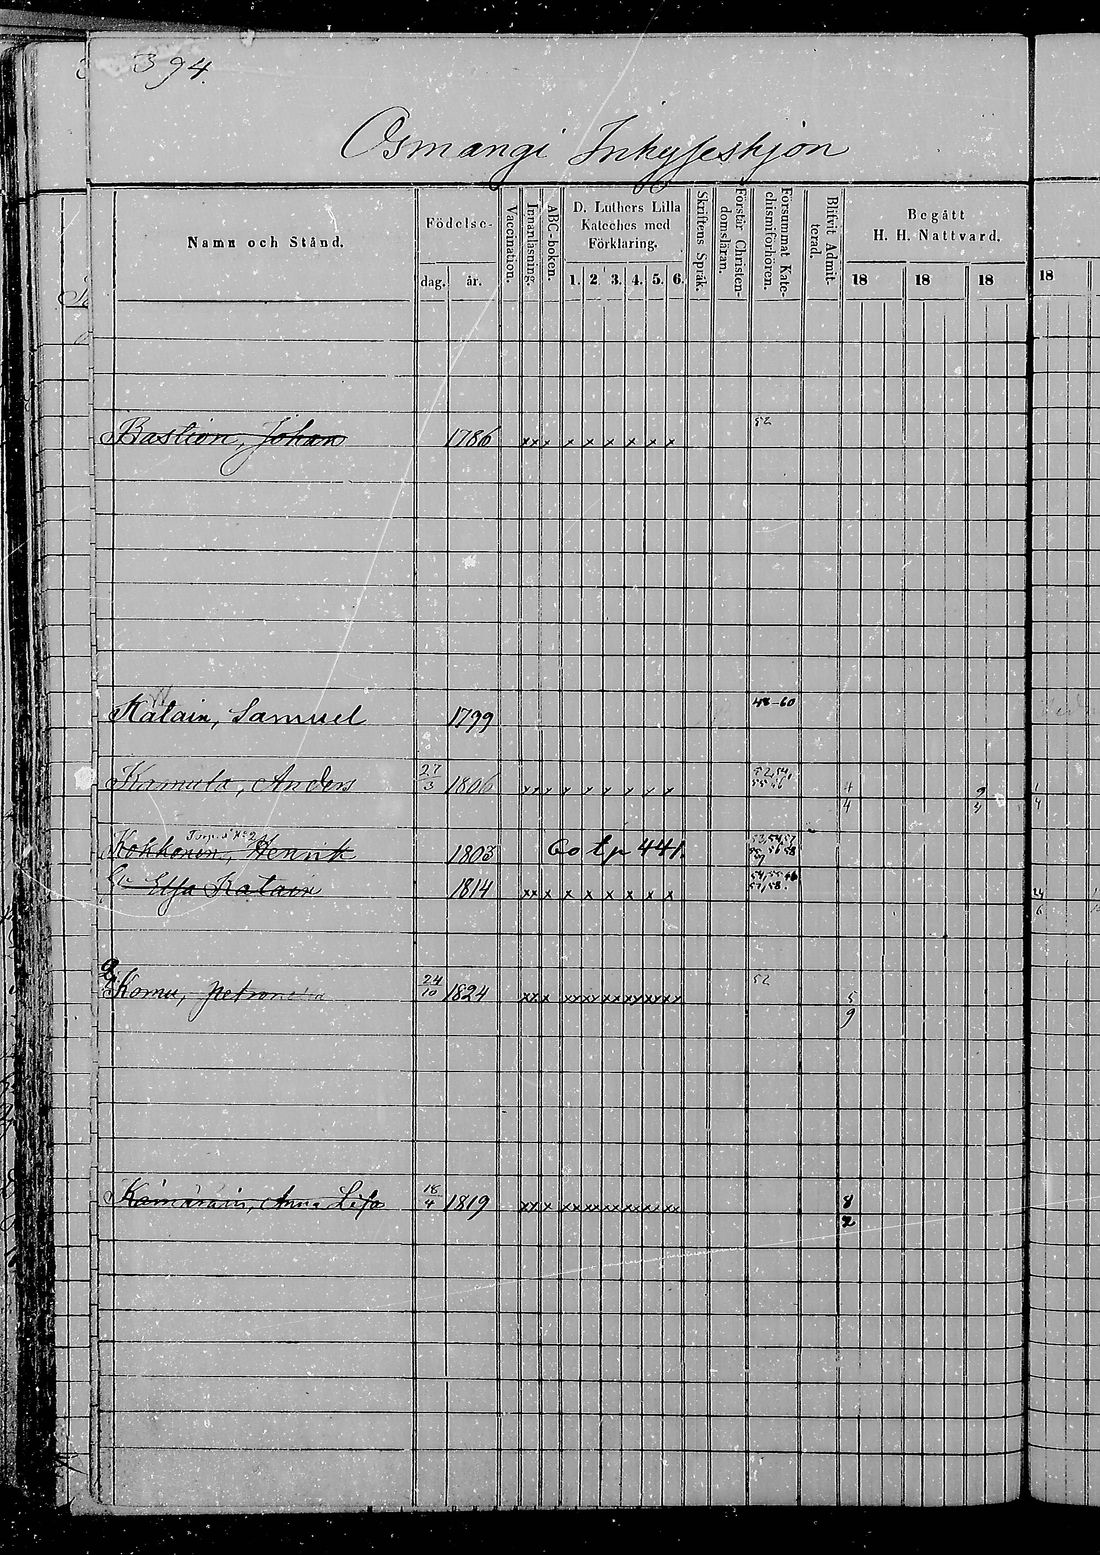 394.
Osmangi Inhyseshjon
Namn och Stånd.
Födelse-
dag. år.
Vaccination.
Innanläsning.
ABC-boken.
D. Luthers Lilla
Kateches med
Förklaring.
1. 2. 3. 4. 5. 6.
Skriftens Språk.
Förstår Christen-
domsläran.
Försummat Kate-
chismiförhören.
Blifvit Admit-
terad.
Begått
H. H. Nattvard.
18 18 18
18
Bastion, Johan 1786 x x x x x x x x x 52
Katain, Samuel 1799 48-60
Kamula, Anders 27/3 1806 x x x x x x x x x 4/4 9/4
Kokkonen, Henrik 1803 60 tp 441.
Elsa Katain 1814 x x x x x x x x x 24/6
Komu, Petronella 24/10 1824 xxx xxxxxxxxxxxx 52 5/9
Kämäräin, Anna Lisa 18/4 1819 xxx xxxxxxxxxxxx 8/2